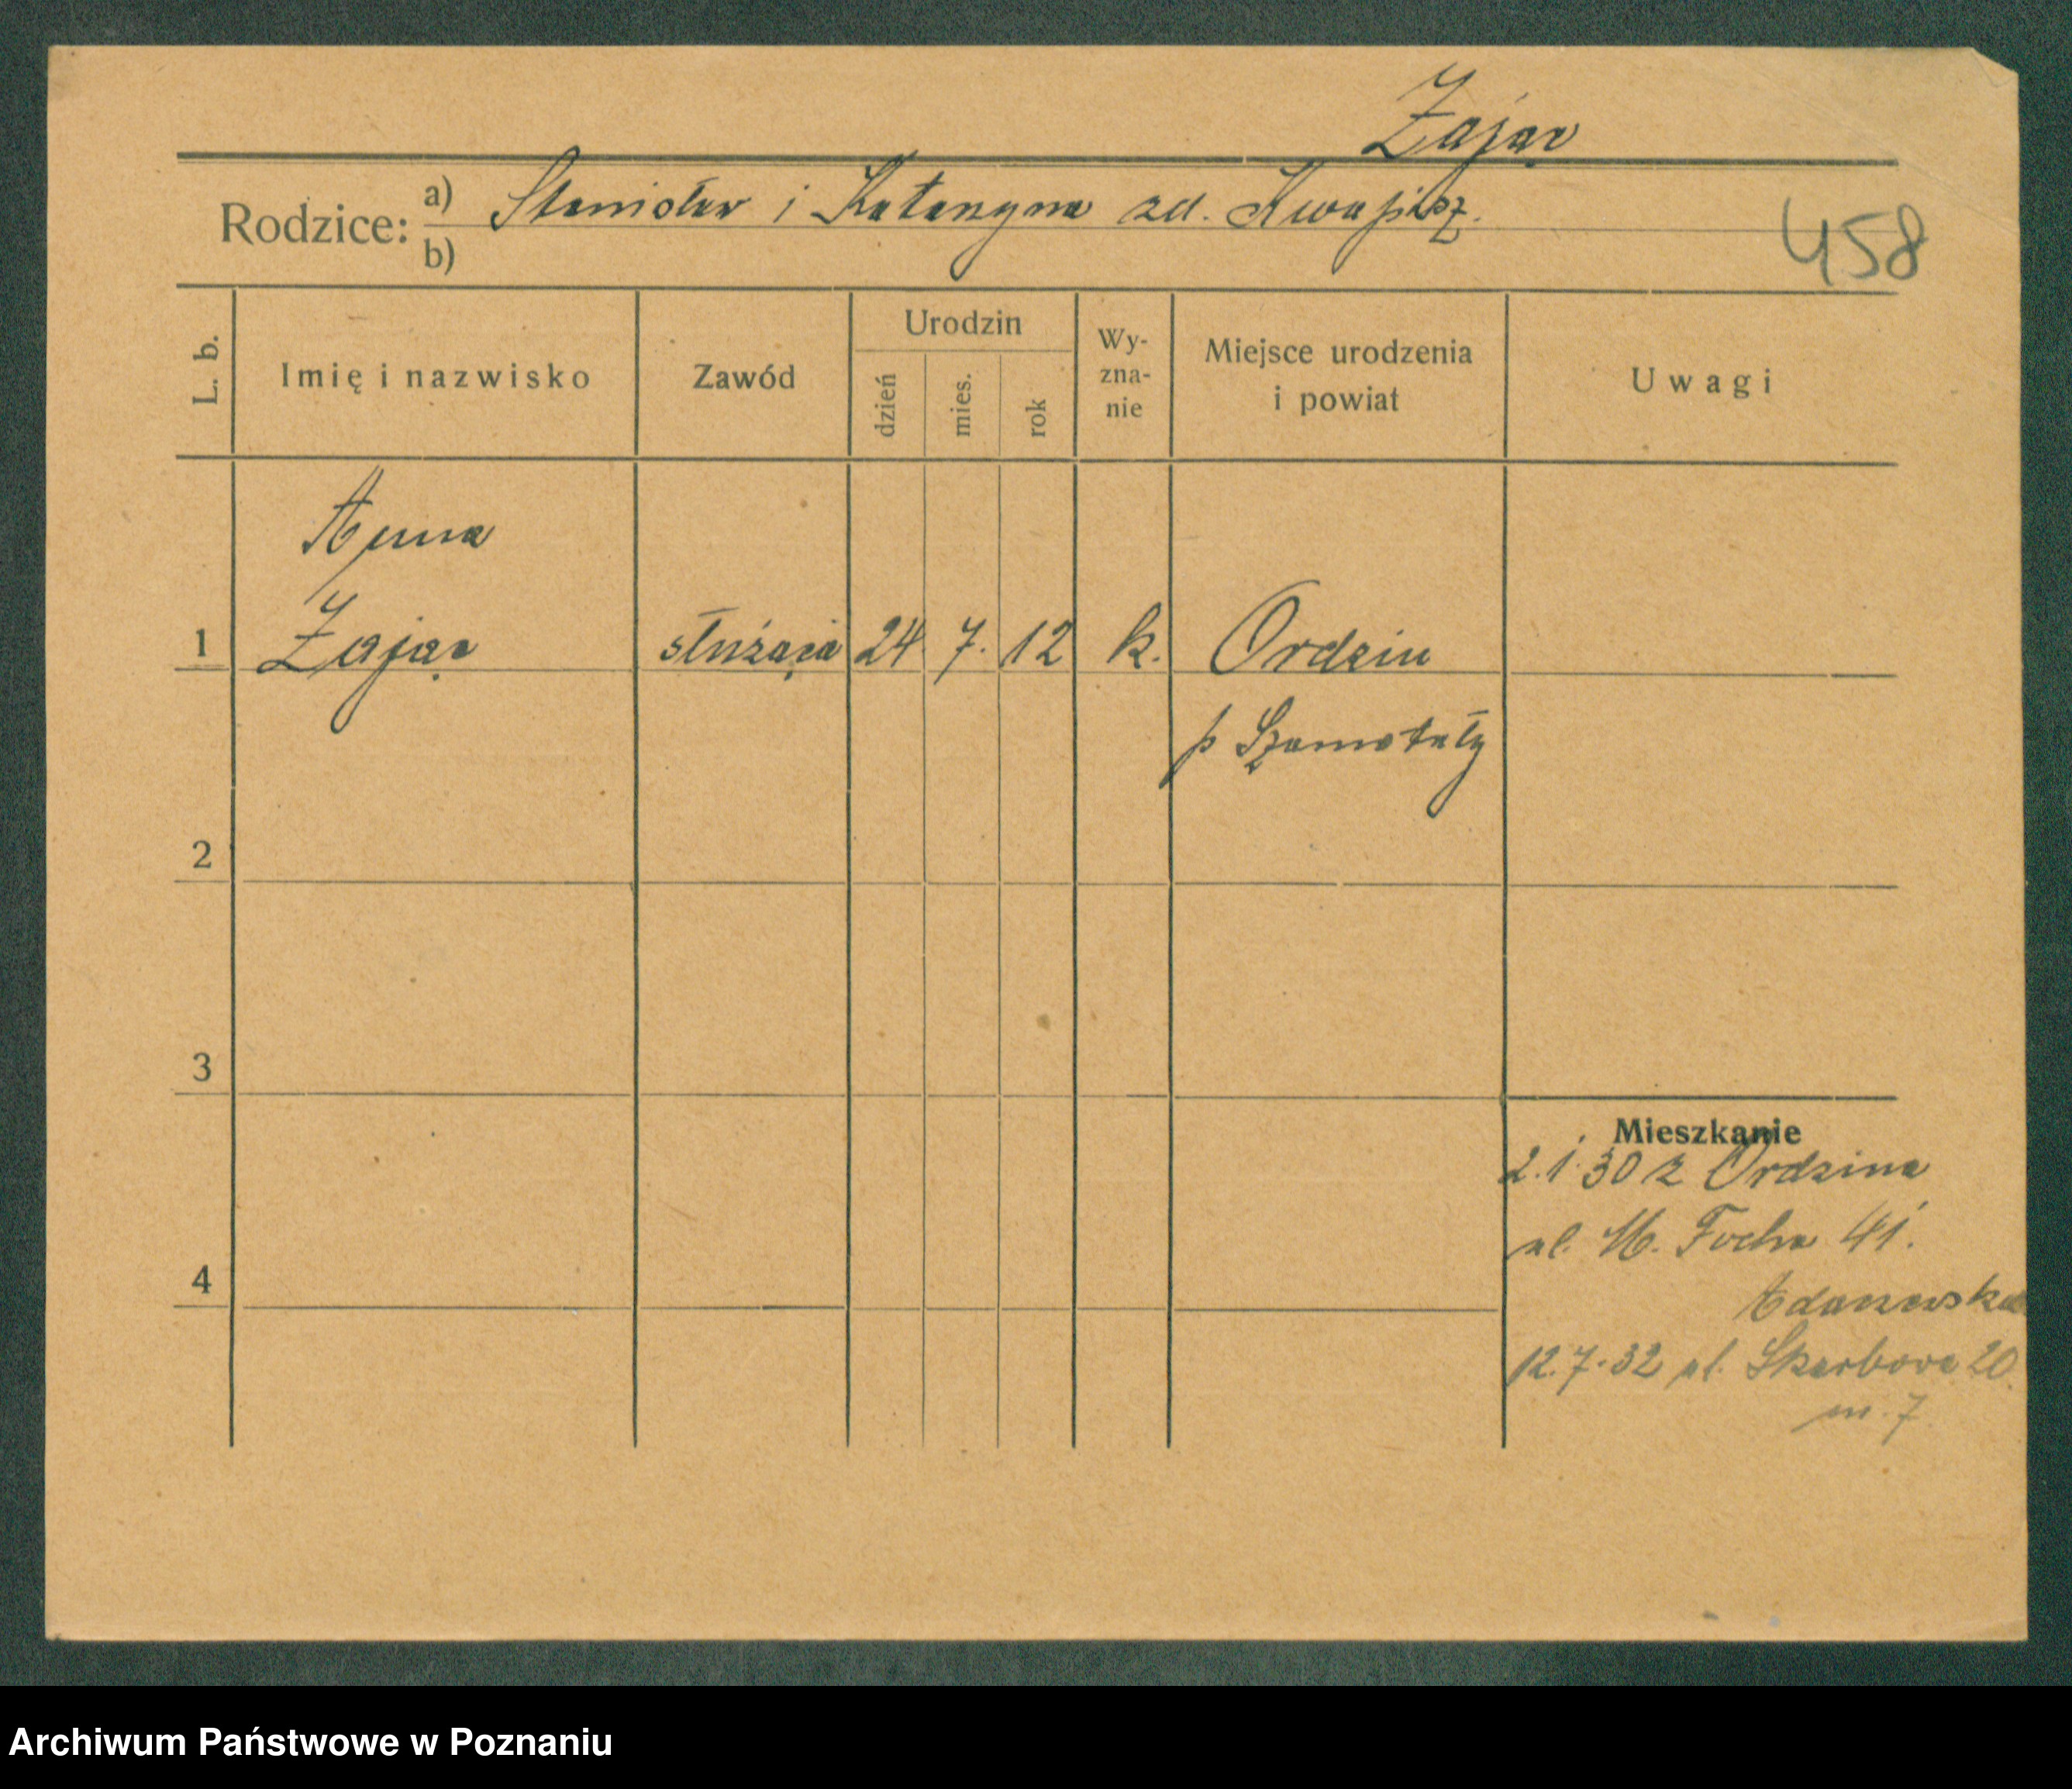 Zając
Rodzice: a) Stanisław i Katarzyna zd. Kwapisz.
b)
458
L. b.
Imię i nazwisko
Zawód
Urodzin
dzień
mies.
rok
Wy-
zna-
nie
Miejsce urodzenia
i powiat
Uwagi
Anna
1 Zając służąca 24. 7. 12 k. Ordzin
p Szamotuły
2
3
4
Mieszkanie
2.1.30 z Ordzina
ul. M. Focha 41.
12.7.32 ul. Skarbowa 20.
m. 7.
Archiwum Państwowe w Poznaniu